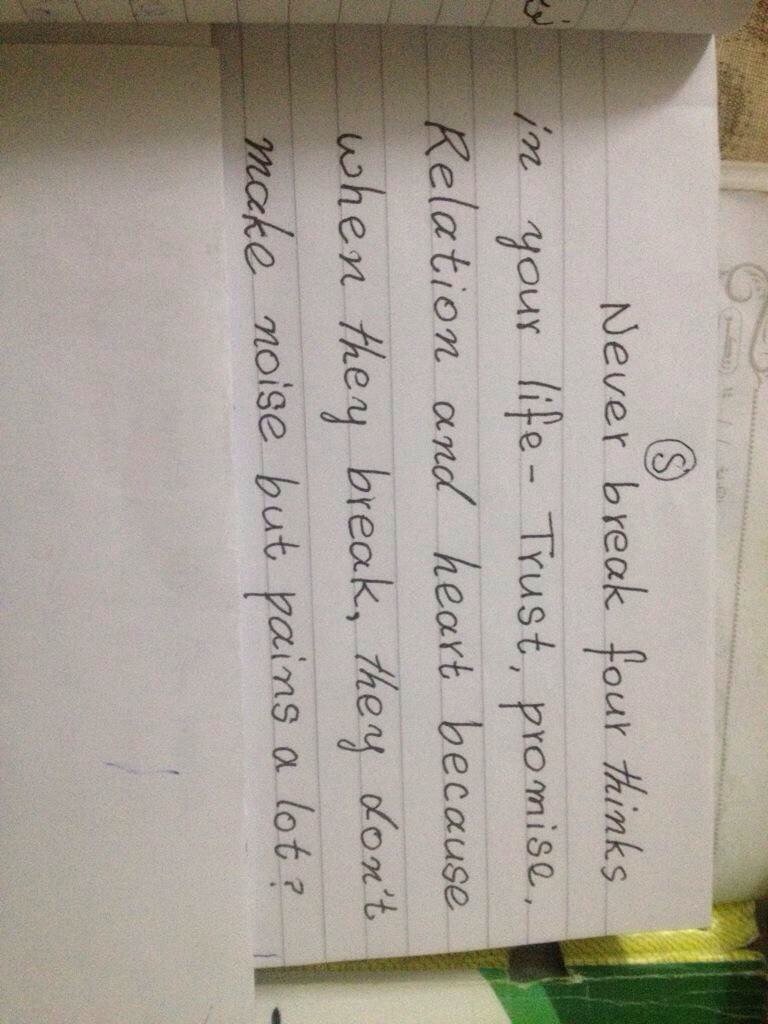 S
Never break four thinks
in your life - Trust, promise,
Relation and heart because
when they break, they don't
make noise but pains a lot?